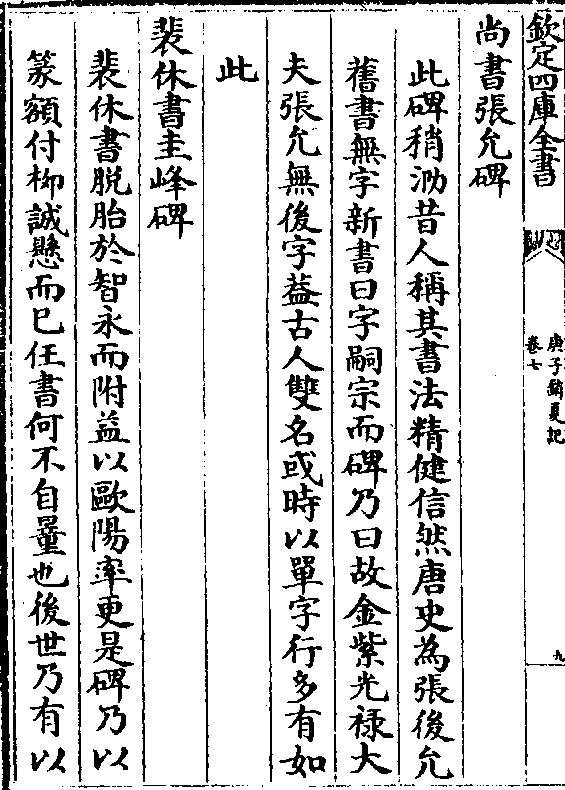 欽定四庫全書
庚子銷夏記
卷七
九
尚書張允碑
此碑稍泐昔人稱其書法精健信然唐史為張後允
舊書無字新書曰字嗣宗而碑乃曰故金紫光禄大
夫張允無後字葢古人雙名或時以單字行多有如
此
裴休書圭峰碑
裴休書脱胎於智永而附益以歐陽率更是碑乃以
篆額付柳誠懸而已任書何不自量也後世乃有以